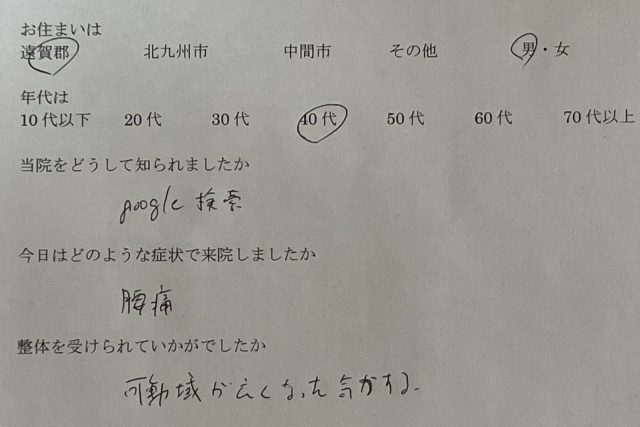 お住まいは
遠賀郡 北九州市 中間市 その他 男・女
年代は
10代以下 20代 30代 40代 50代 60代 70代以上
当院をどうして知られましたか
google 検索
今日はどのような症状で来院しましたか
腰痛
整体を受けられていかがでしたか
可動域が広くなった気がする。